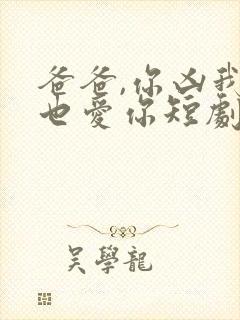 爸爸,你凶我
也爱你短劇
吴學龍